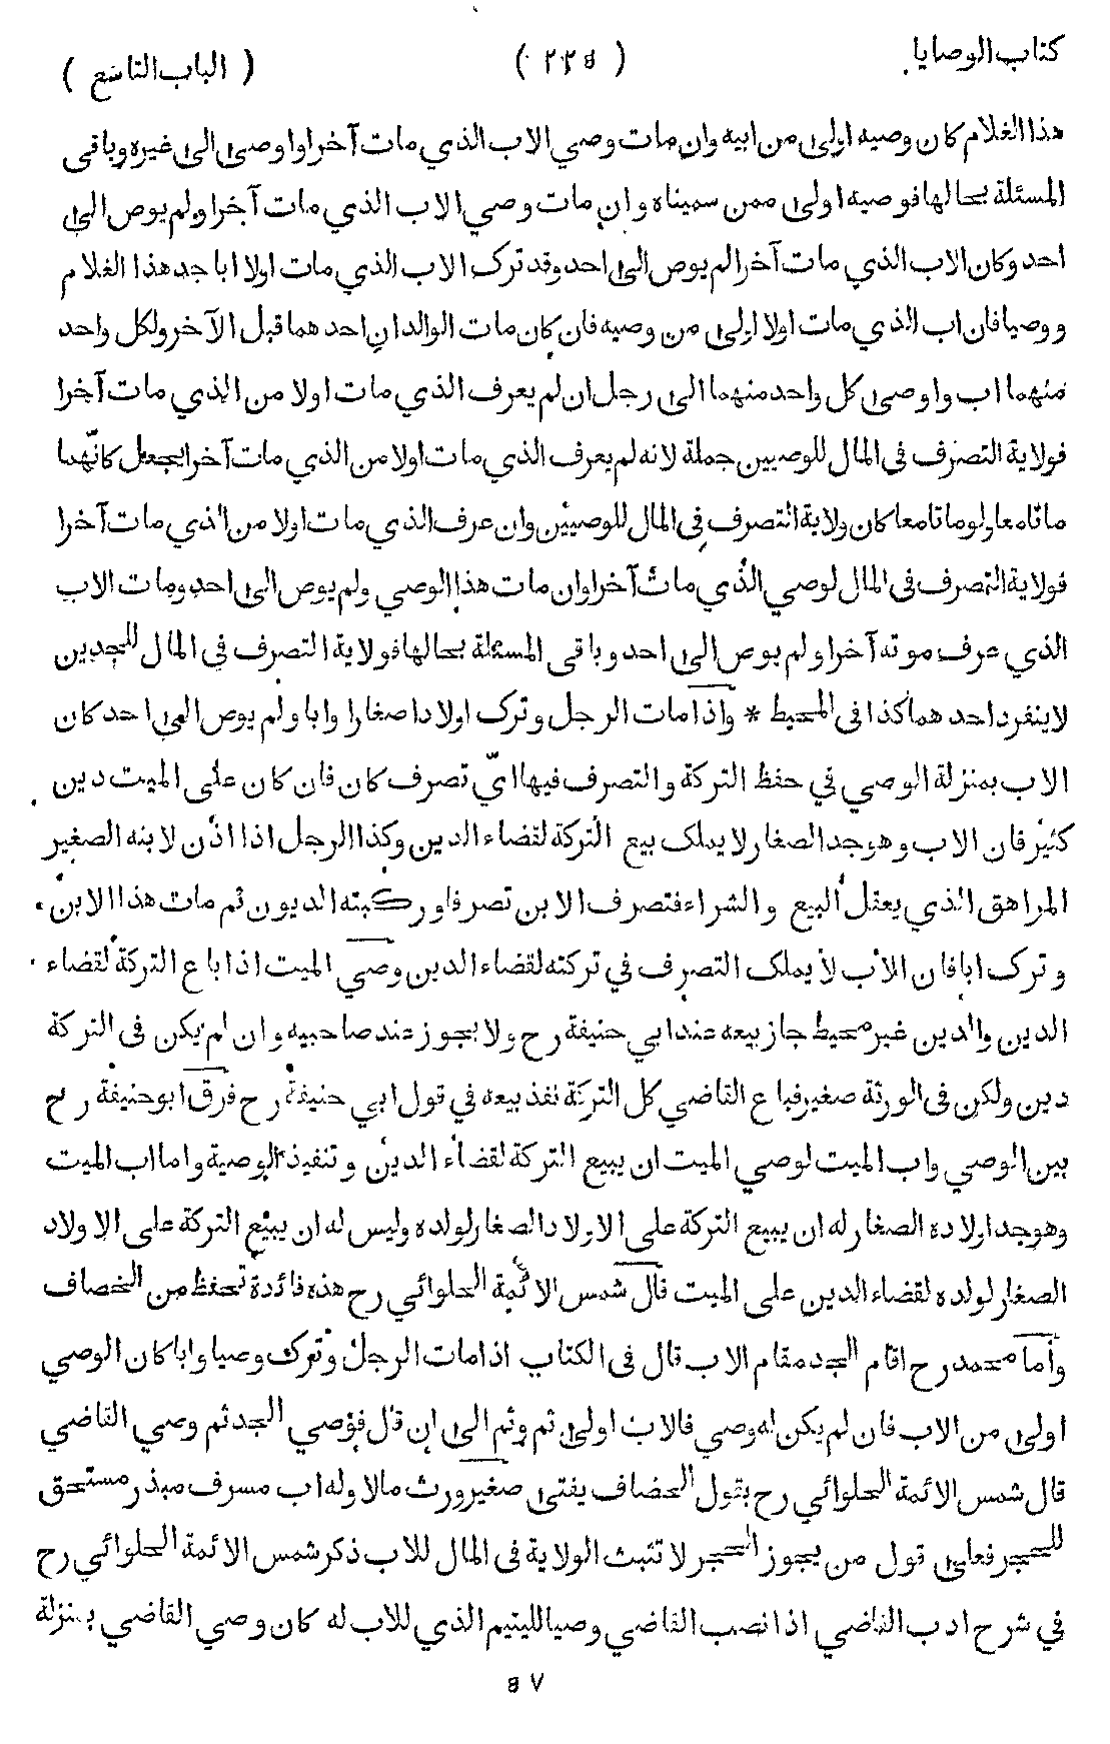 كتاب الوصايا
( ٢٢٥ )
( الباب التاسع )
هذا الغلام كان وصيه اولى من ابيه وان مات وصي الاب الذي مات آخرا واوصى الى غيره وباقى
المسئلة بحالها فوصيه اولى ممن سميناه وان مات وصي الاب الذي مات آخرا ولم يوص الى
احد وكان الاب الذي مات آخرا لم يوص الى احد وقد ترك الاب الذي مات اولا ابا جد هذا الغلام
ووصيا فان اب الذي مات اولا اولى من وصيه فان كان مات الوالدان احدهما قبل الآخر ولكل واحد
منهما اب واوصى كل واحد منهما الى رجل ان لم يعرف الذي مات اولا من الذي مات آخرا
فولاية التصرف فى المال للوصيين جملة لانه لم يعرف الذي مات اولا من الذي مات آخرا يجعل كانّهما
ماتا معا ولو ماتا معا كان ولاية التصرف فى المال للوصيين وان عرف الذي مات اولا من الذي مات آخرا
فولاية التصرف فى المال لوصي الذي مات آخرا وان مات هذا الوصي ولم يوص الى احد ومات الاب
الذي عرف موته آخرا ولم يوص الى احد وباقى المسئلة بحالها فولاية التصرف فى المال للجدين
لا ينفرد احدهما كذا فى المحيط * واذا مات الرجل وترك اولادا صغارا وابا ولم يوص الى احد كان
الاب بمنزلة الوصي في حفظ التركة والتصرف فيها ايّ تصرف كان فان كان على الميت دين
كثير فان الاب وهو جد الصغار لا يملك بيع التركة لقضاء الدين وكذا الرجل اذا اذن لابنه الصغير
المراهق الذي يعقل البيع والشراء فتصرف الابن تصرفا وركبته الديون ثم مات هذا الابن
وترك ابا فان الاب لا يملك التصرف في تركته لقضاء الدين وصي الميت اذا باع التركة لقضاء
الدين والدين غير محيط جاز بيعه عند ابي حنيفة رح ولا يجوز عند صاحبيه وان لم يكن فى التركة
دين ولكن فى الورثة صغير فباع القاضي كل التركة نفذ بيعه في قول ابي حنيفة رح فرق ابو حنيفة رح
بين الوصي واب الميت لوصي الميت ان يبيع التركة لقضاء الدين وتنفيذ الوصية واما اب الميت
وهو جد اولاده الصغار له ان يبيع التركة على الاولاد الصغار لولده وليس له ان يبيع التركة على الاولاد
الصغار لولده لقضاء الدين على الميت قال شمس الائمة الحلوائي رح هذه فائدة تحفظ من الخصاف
وأما محمد رح اقام الجد مقام الاب قال فى الكتاب اذا مات الرجل وترك وصيا وابا كان الوصي
اولى من الاب فان لم يكن له وصي فالاب اولى ثم وثم الى ان قال فوصي الجد ثم وصي القاضي
قال شمس الائمة الحلوائي رح بقول الخصاف يفتى صغير ورث مالا وله اب مسرف مبذر مستحق
للحجر فعلى قول من يجوز الحجر لا تثبت الولاية فى المال للاب ذكر شمس الائمة الحلوائي رح
في شرح ادب القاضي اذا نصب القاضي وصيا لليتيم الذي للاب له كان وصي القاضي بمنزلة
٥٧